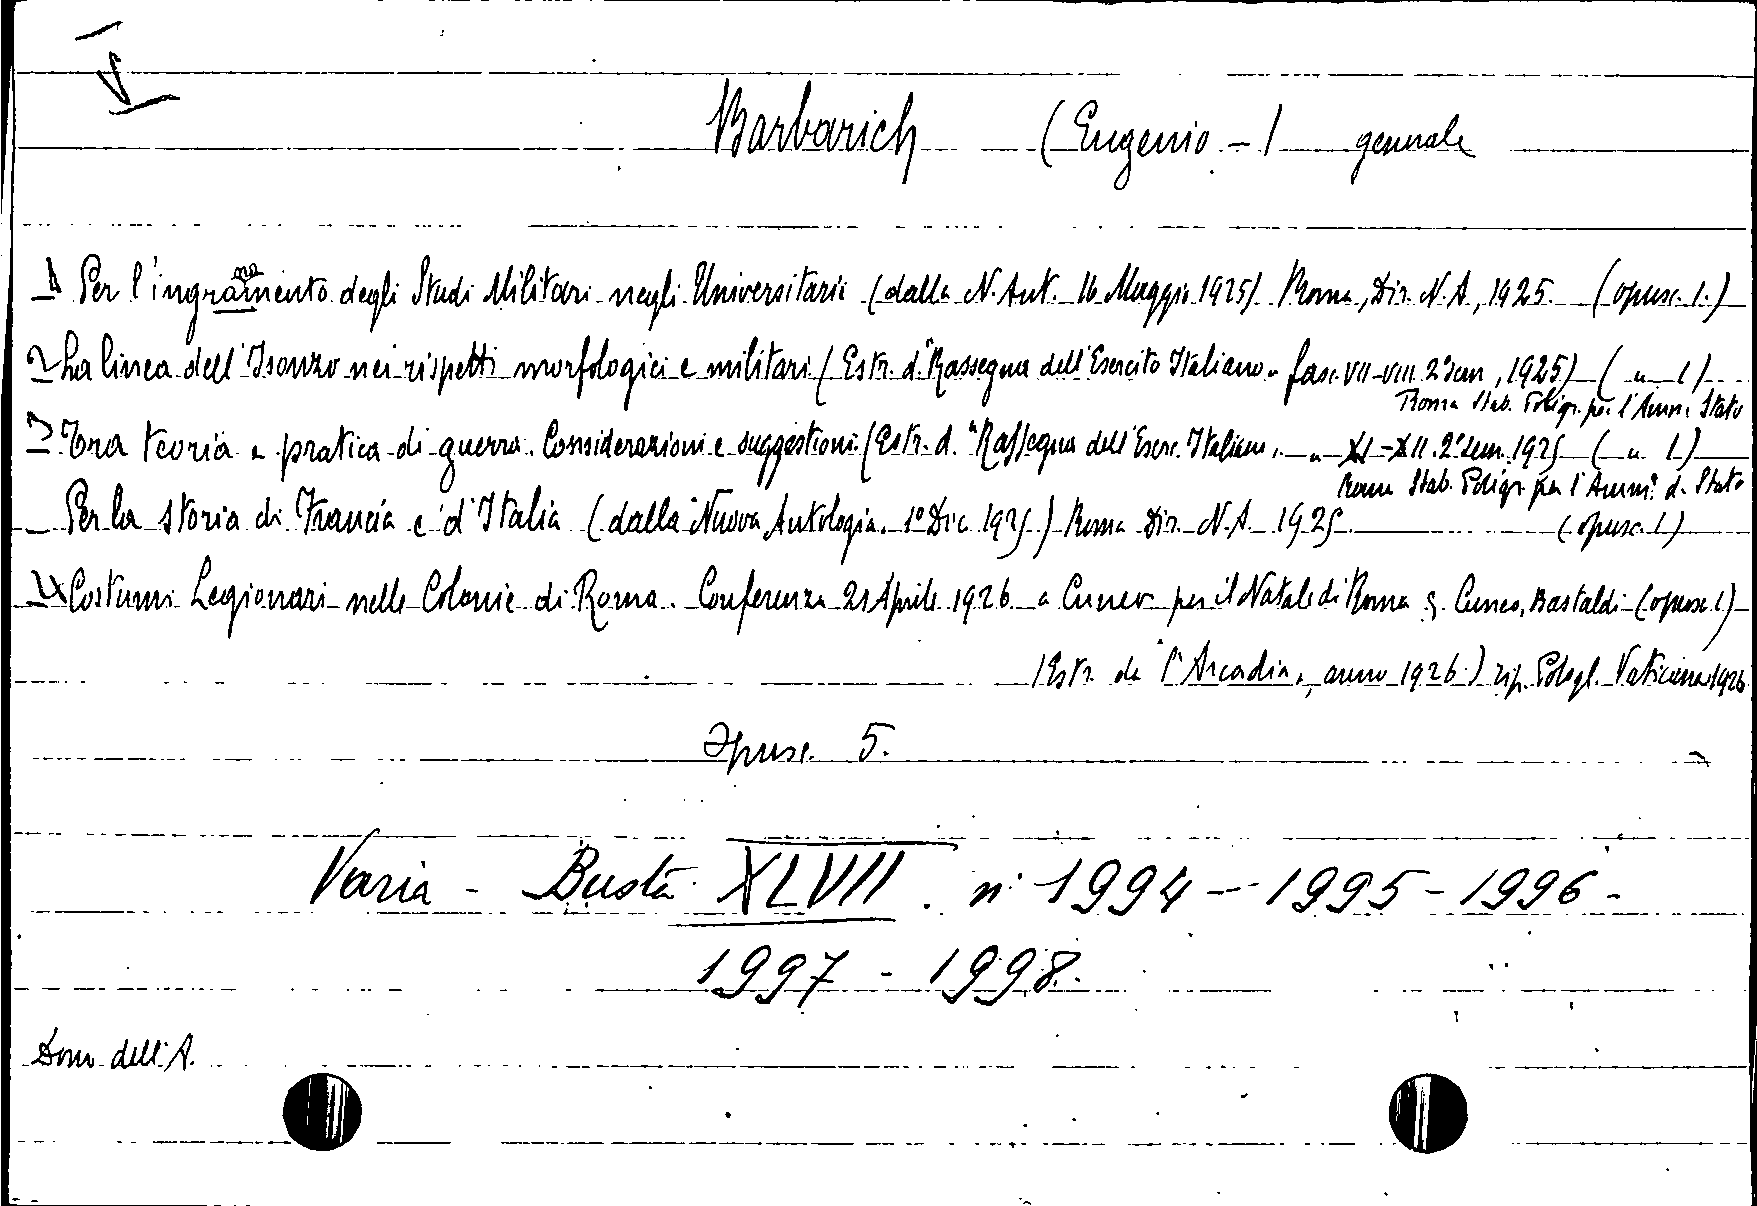 V
Barbarich (Eugenio -) generale
1 Per l'ingranamento degli Studi Militari negli Universitari (dalla N. Ant. 16 Maggio 1925). Roma, Dir. N.A., 1925. (opusc. 1.)
2 La linea dell'Isonzo nei rispetti morfologici e militari (Estr. d. "Rassegna dell'Esercito Italiano" fasc. VII-VIII 2° sem, 1925) ( " 1)
Roma Stab. Poligr. per l'Amm. Stato
3 Tra teoria e pratica di guerra. Considerazioni e suggestioni (Estr. d. "Rassegna dell'Eserc. Italiano, " XI-XII. 2° sem. 1925 ( " 1)
Roma Stab. Poligr. per l'Amm. d. Stato
Per la storia di Francia e d'Italia (dalla Nuova Antologia. 1° Dic. 1925.) Roma Dir. N.A. 1925 (opusc. 1)
4 Costumi Legionari nelle Colonie di Roma. Conferenza 21 Aprile 1926 a Cuneo per il Natale di Roma Cuneo, Bastaldi (opusc 1)
(Estr. da l'Arcadia, anno 1926.) tip. Poligl. Vaticana 1926
Opusc. 5.
Varia - Busta XLVII. n. 1994 - 1995 - 1996 -
1997 - 1998.
Dono dell'A.